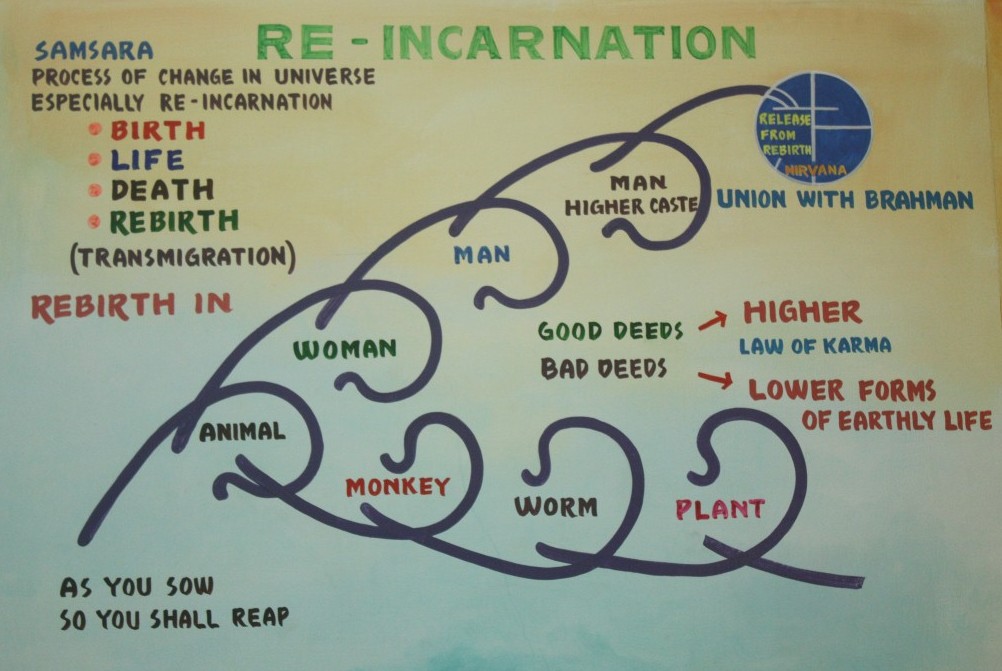 RE-INCARNATION
SAMSARA
PROCESS OF CHANGE IN UNIVERSE
ESPECIALLY RE-INCARNATION
• BIRTH
• LIFE
• DEATH
• REBIRTH
(TRANSMIGRATION)
REBIRTH IN
RELEASE
FROM
REBIRTH
NIRVANA
UNION WITH BRAHMAN
MAN
HIGHER CASTE
MAN
WOMAN
ANIMAL
MONKEY
WORM
PLANT
GOOD DEEDS → HIGHER
LAW OF KARMA
BAD DEEDS → LOWER FORMS
OF EARTHLY LIFE
AS YOU SOW
SO YOU SHALL REAP